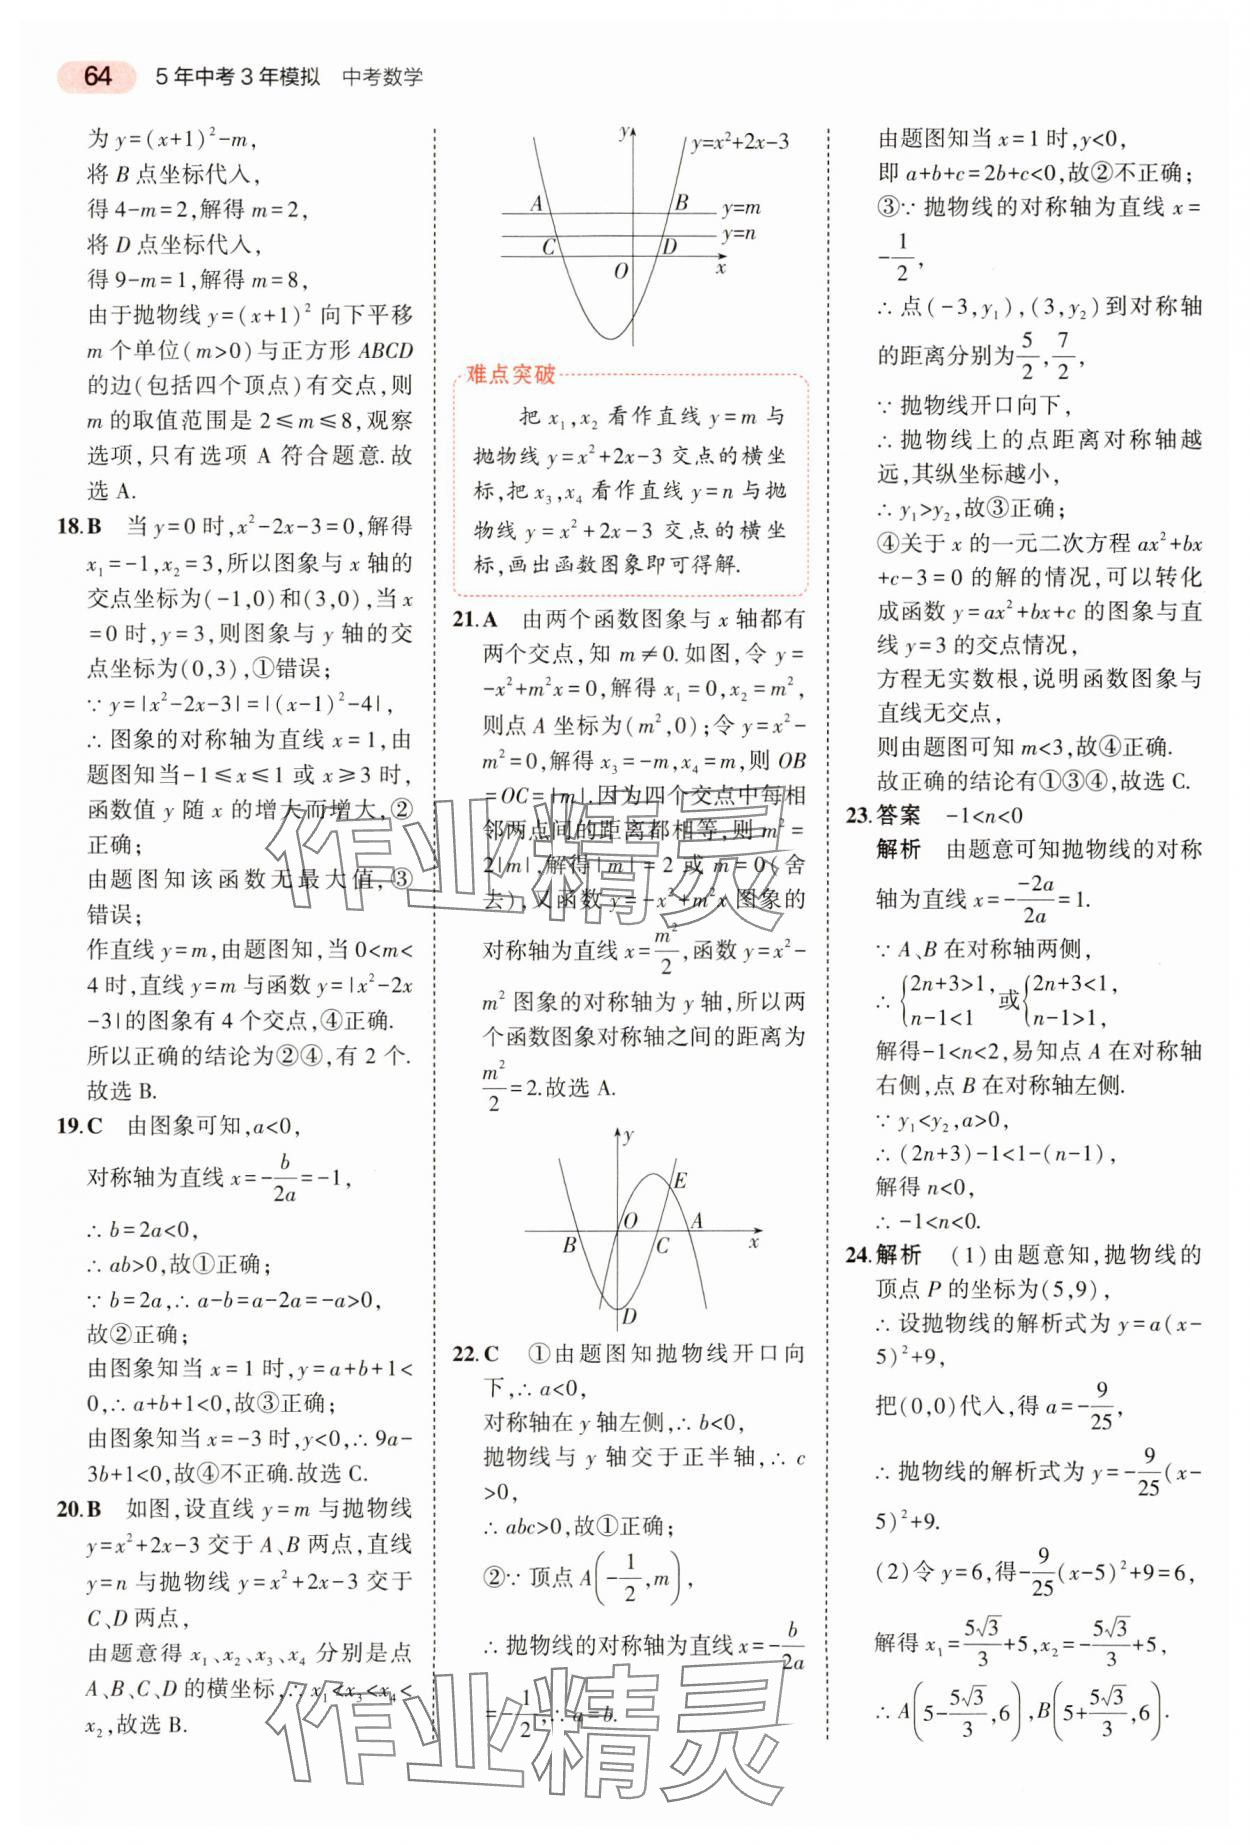 64 5年中考3年模拟 中考数学
为 y=(x+1)²-m,
将 B 点坐标代入,
得 4-m=2,解得 m=2,
将 D 点坐标代入,
得 9-m=1,解得 m=8,
由于抛物线 y=(x+1)² 向下平移
m 个单位(m>0)与正方形 ABCD
的边(包括四个顶点)有交点,则
m 的取值范围是 2≤m≤8,观察
选项,只有选项 A 符合题意.故
选 A.
18.B 当 y=0 时,x²-2x-3=0,解得
x₁=-1,x₂=3,所以图象与 x 轴的
交点坐标为(-1,0)和(3,0),当 x
=0 时,y=3,则图象与 y 轴的交
点坐标为(0,3),①错误;
∵ y=|x²-2x-3|=|(x-1)²-4|,
∴ 图象的对称轴为直线 x=1,由
题图知当-1≤x≤1 或 x≥3 时,
函数值 y 随 x 的增大而增大,②
正确;
由题图知该函数无最大值,③
错误;
作直线 y=m,由题图知,当 0<m<
4 时,直线 y=m 与函数 y=|x²-2x
-3|的图象有 4 个交点,④正确.
所以正确的结论为②④,有 2 个.
故选 B.
19.C 由图象可知,a<0,
对称轴为直线 x=-b/2a=-1,
∴ b=2a<0,
∴ ab>0,故①正确;
∵ b=2a,∴ a-b=a-2a=-a>0,
故②正确;
由图象知当 x=1 时,y=a+b+1<
0,∴ a+b+1<0,故③正确;
由图象知当 x=-3 时,y<0,∴ 9a-
3b+1<0,故④不正确.故选 C.
20.B 如图,设直线 y=m 与抛物线
y=x²+2x-3 交于 A、B 两点,直线
y=n 与抛物线 y=x²+2x-3 交于
C、D 两点,
由题意得 x₁、x₂、x₃、x₄ 分别是点
A、B、C、D 的横坐标,∴ x₁<x₃<x₄<
x₂,故选 B.
y
y=x²+2x-3
A B y=m
C D y=n
O x
难点突破
把 x₁,x₂ 看作直线 y=m 与
抛物线 y=x²+2x-3 交点的横坐
标,把 x₃,x₄ 看作直线 y=n 与抛
物线 y=x²+2x-3 交点的横坐
标,画出函数图象即可得解.
21.A 由两个函数图象与 x 轴都有
两个交点,知 m≠0.如图,令 y=
-x²+m²x=0,解得 x₁=0,x₂=m²,
则点 A 坐标为(m²,0);令 y=x²-
m²=0,解得 x₃=-m,x₄=m,则 OB
=OC=|m|.因为四个交点中每相
邻两点间的距离都相等,则 m²=
2|m|,解得|m|=2 或 m=0(舍
去),又函数 y=-x²+m²x 图象的
对称轴为直线 x=m²/2,函数 y=x²-
m² 图象的对称轴为 y 轴,所以两
个函数图象对称轴之间的距离为
m²/2=2.故选 A.
y
E
O A
B C x
D
22.C ①由题图知抛物线开口向
下,∴ a<0,
对称轴在 y 轴左侧,∴ b<0,
抛物线与 y 轴交于正半轴,∴ c
>0,
∴ abc>0,故①正确;
②∵ 顶点 A(-1/2,m),
∴ 抛物线的对称轴为直线 x=-b/2a
=-1/2,∴ a=b.
由题图知当 x=1 时,y<0,
即 a+b+c=2b+c<0,故②不正确;
③∵ 抛物线的对称轴为直线 x=
-1/2,
∴ 点(-3,y₁),(3,y₂)到对称轴
的距离分别为5/2,7/2,
∵ 抛物线开口向下,
∴ 抛物线上的点距离对称轴越
远,其纵坐标越小,
∴ y₁>y₂,故③正确;
④关于 x 的一元二次方程 ax²+bx
+c-3=0 的解的情况,可以转化
成函数 y=ax²+bx+c 的图象与直
线 y=3 的交点情况,
方程无实数根,说明函数图象与
直线无交点,
则由题图可知 m<3,故④正确.
故正确的结论有①③④,故选 C.
23.答案 -1<n<0
解析 由题意可知抛物线的对称
轴为直线 x=--2a/2a=1.
∵ A、B 在对称轴两侧,
∴ {2n+3>1, n-1<1 或{2n+3<1, n-1>1,
解得-1<n<2,易知点 A 在对称轴
右侧,点 B 在对称轴左侧.
∵ y₁<y₂,a>0,
∴ (2n+3)-1<1-(n-1),
解得 n<0,
∴ -1<n<0.
24.解析 (1)由题意知,抛物线的
顶点 P 的坐标为(5,9),
∴ 设抛物线的解析式为 y=a(x-
5)²+9,
把(0,0)代入,得 a=-9/25,
∴ 抛物线的解析式为 y=-9/25(x-
5)²+9.
(2)令 y=6,得-9/25(x-5)²+9=6,
解得 x₁=5√3/3+5,x₂=-5√3/3+5,
∴ A(5-5√3/3,6),B(5+5√3/3,6).
作业精灵
作业精灵